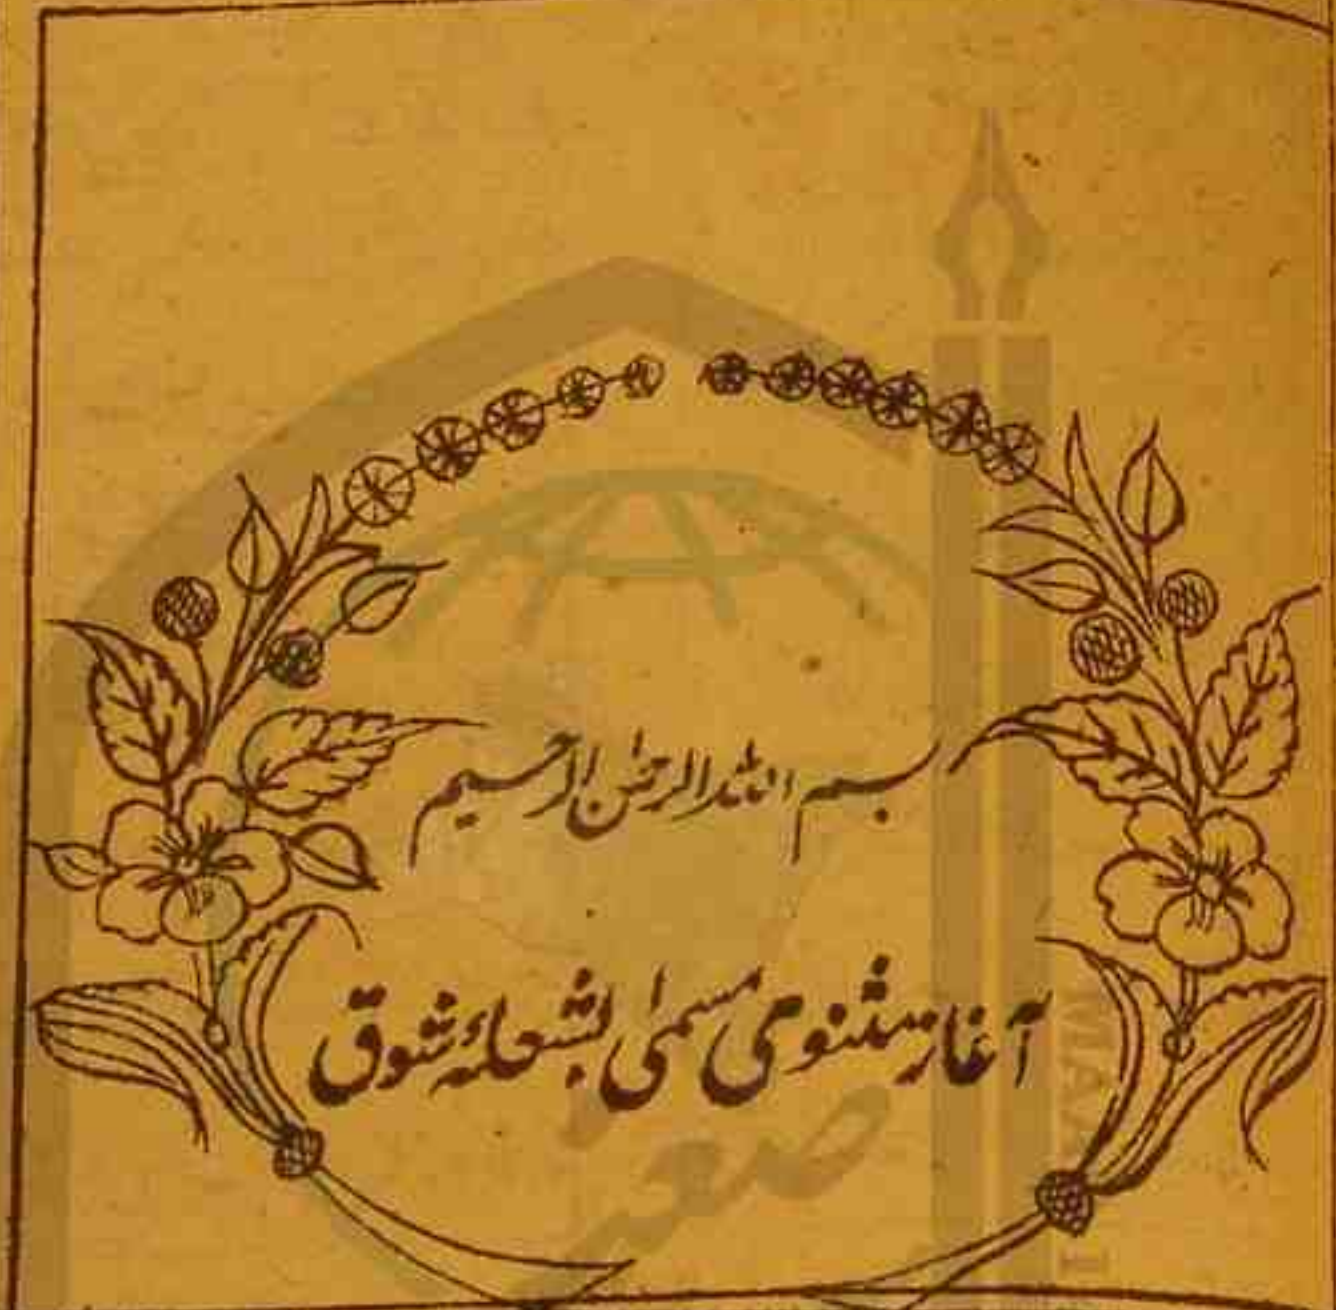 بسم الله الرحمن الرحیم
آغاز مثنوی مسمی بشعلۂ شوق